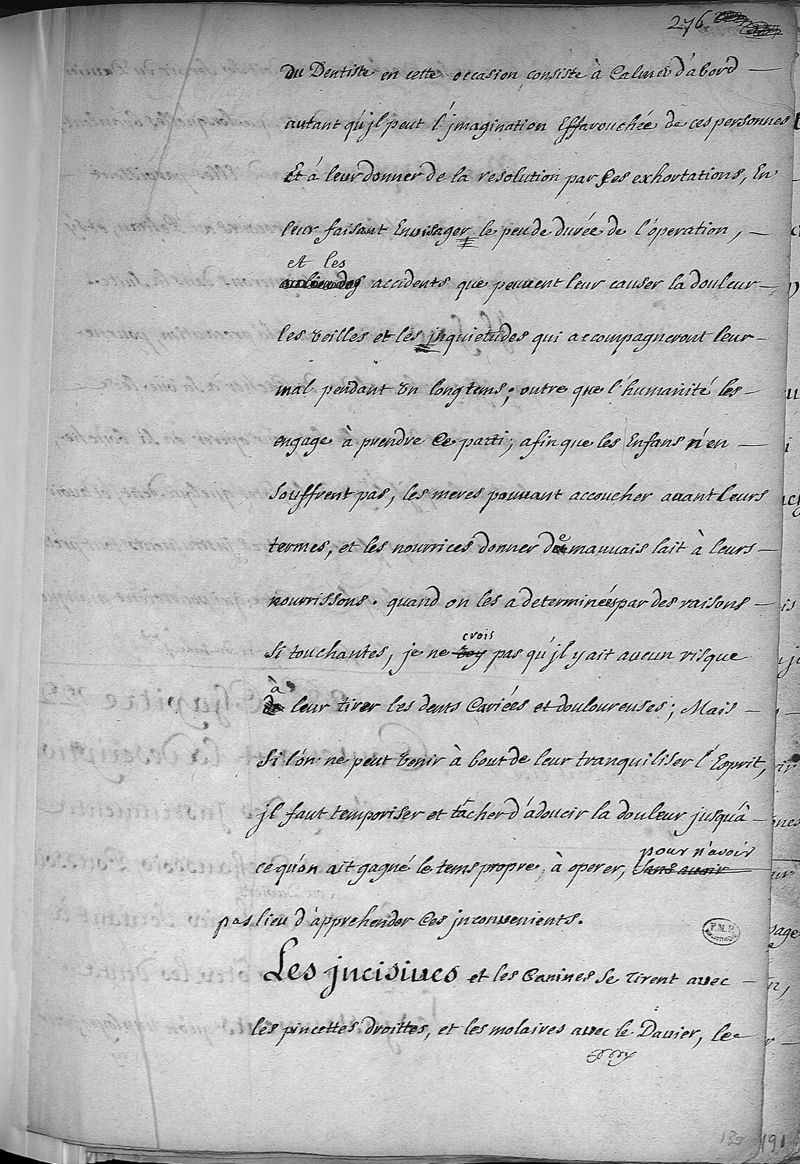 276.
du Dentiste en cette occasion consiste à Calmer d'abord —
autant qu'jl peut l'jmagination Effarouchée de ces personnes
Et à leur donner de la resolution par ses exhortations, En
leur faisant Envisager le peu de durée de l'operation, —
et les
accidents que peuvent leur causer la douleur —
les veilles et les jnquietudes qui accompagneront leur —
mal pendant un longtems; outre que l'humanité les —
engage à prendre ce parti; afin que les Enfans n'en —
souffrent pas, les meres pouvant accoucher avant leurs
termes, et les nourrices donner de mauvais lait à leurs —
nourrissons. quand on les a determinées par des raisons —
crois
si touchantes, je ne pas qu'jl y ait aucun risque
à
de leur tirer les dents Cariées et douloureuses; Mais —
si l'on ne peut venir à bout de leur tranquiliser l'Esprit,
jl faut temporiser et tâcher d'adoucir la douleur jusqu'à —
ce qu'on ait gagné le tems propre à operer, sans avoir
pour n'avoir
pas lieu d'apprehender ces jnconvenients.
Les jncisives et les Canines se tirent avec —
les pincettes droittes, et les molaires avec le Davier, le
189
191